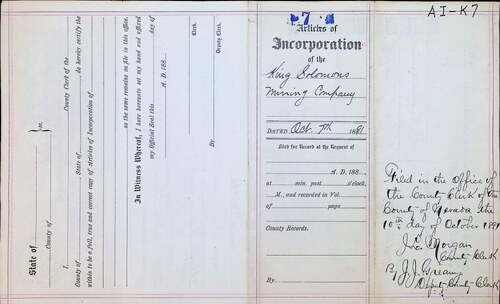 State of
County of
ss.
I, County Clerk of the
County of , State of , do hereby certify the
within to be a full, true and correct copy of Articles of Incorporation of
as the same remains on file in this office.
In Witness Whereof, I have hereunto set my hand and affixed
my Official Seal this day of
A. D. 188
Clerk.
By
Deputy Clerk.
7
Articles of
Incorporation
of the
King Solomons
Mining Company
DATED Oct. 7th 1881
Filed for Record at the Request of
A. D. 188
at min. past o'clock,
M., and recorded in Vol.
of page
County Records.
By
AI-K7
Filed in the Office of
the County Clerk of the
County of Nevada the
10th day of October 1881
Morgan
County Clerk
By J. J.
Deputy County Clerk